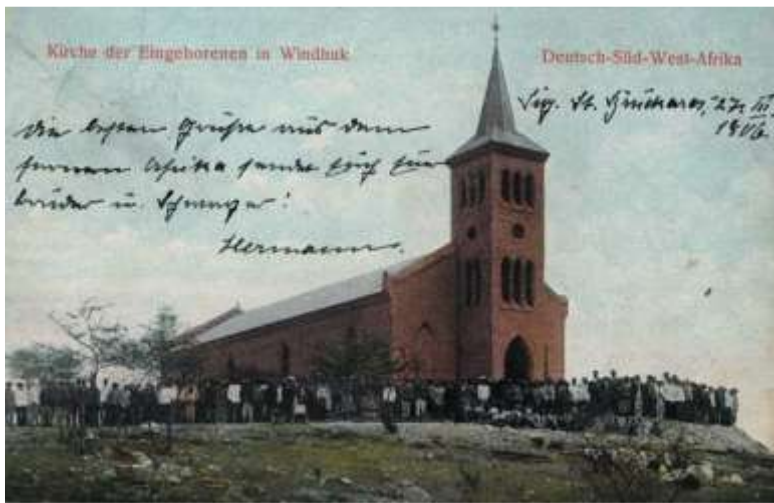 Kirche der Eingeborenen in Windhuk
Deutsch-Süd-West-Afrika
die besten Grüße aus dem
fernen Afrika sendet Euch Euer
Bruder u. Schwager!
Hermann.
Sig. St. 27. III.